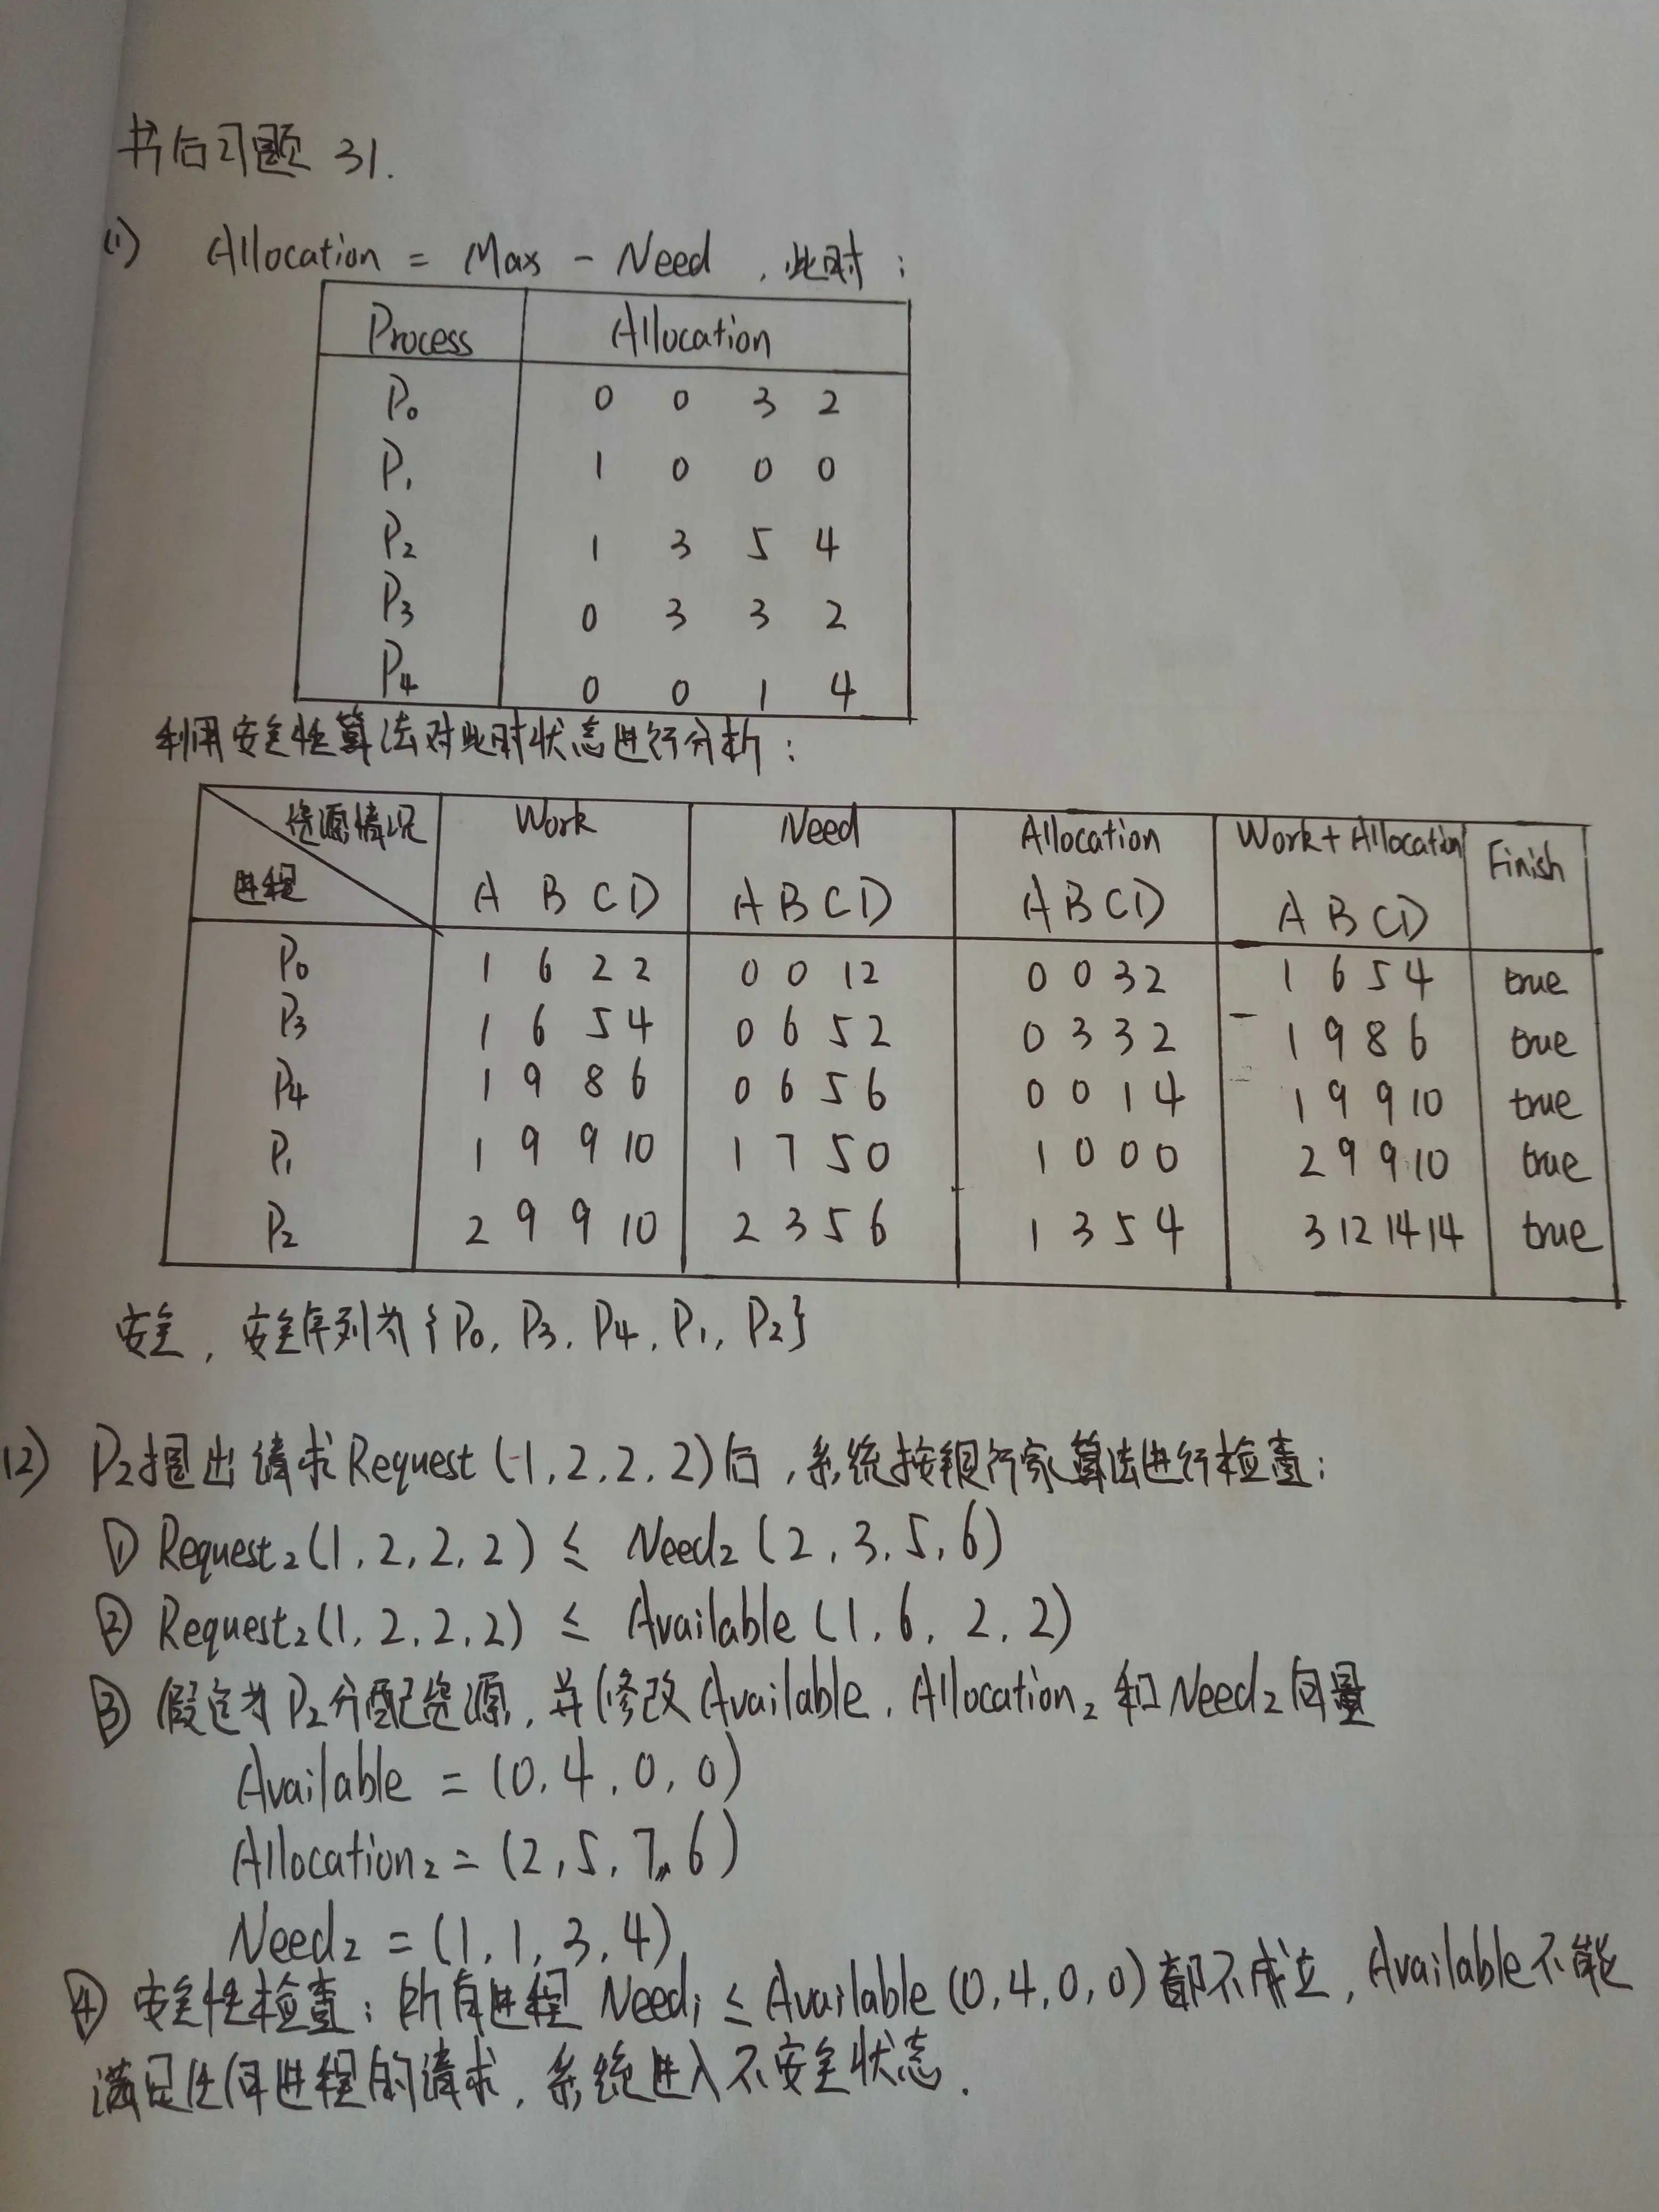 书后习题 31.
(1) Allocation = Max - Need , 此时 :
Process Allocation
P₀ 0 0 3 2
P₁ 1 0 0 0
P₂ 1 3 5 4
P₃ 0 3 3 2
P₄ 0 0 1 4
利用安全性算法对此时状态进行分析 :
资源情况 Work Need Allocation Work+Allocation Finish
进程 A B C D A B C D A B C D A B C D
P₀ 1 6 2 2 0 0 1 2 0 0 3 2 1 6 5 4 true
P₃ 1 6 5 4 0 6 5 2 0 3 3 2 1 9 8 6 true
P₄ 1 9 8 6 0 6 5 6 0 0 1 4 1 9 9 10 true
P₁ 1 9 9 10 1 7 5 0 1 0 0 0 2 9 9 10 true
P₂ 2 9 9 10 2 3 5 6 1 3 5 4 3 12 14 14 true
安全, 安全序列为{P₀, P₃, P₄, P₁, P₂}
(2) P₂提出请求Request(1,2,2,2)后,系统按银行家算法进行检查:
① Request₂(1,2,2,2) ≤ Need₂(2,3,5,6)
② Request₂(1,2,2,2) ≤ Available(1,6,2,2)
③ 假定为P₂分配资源,并修改Available, Allocation₂和Need₂向量
Available = (0,4,0,0)
Allocation₂ = (2,5,7,6)
Need₂ = (1,1,3,4)
④ 安全性检查:所有进程 Needᵢ ≤ Available(0,4,0,0)都不成立,Available不能
满足任何进程的请求,系统进入不安全状态.